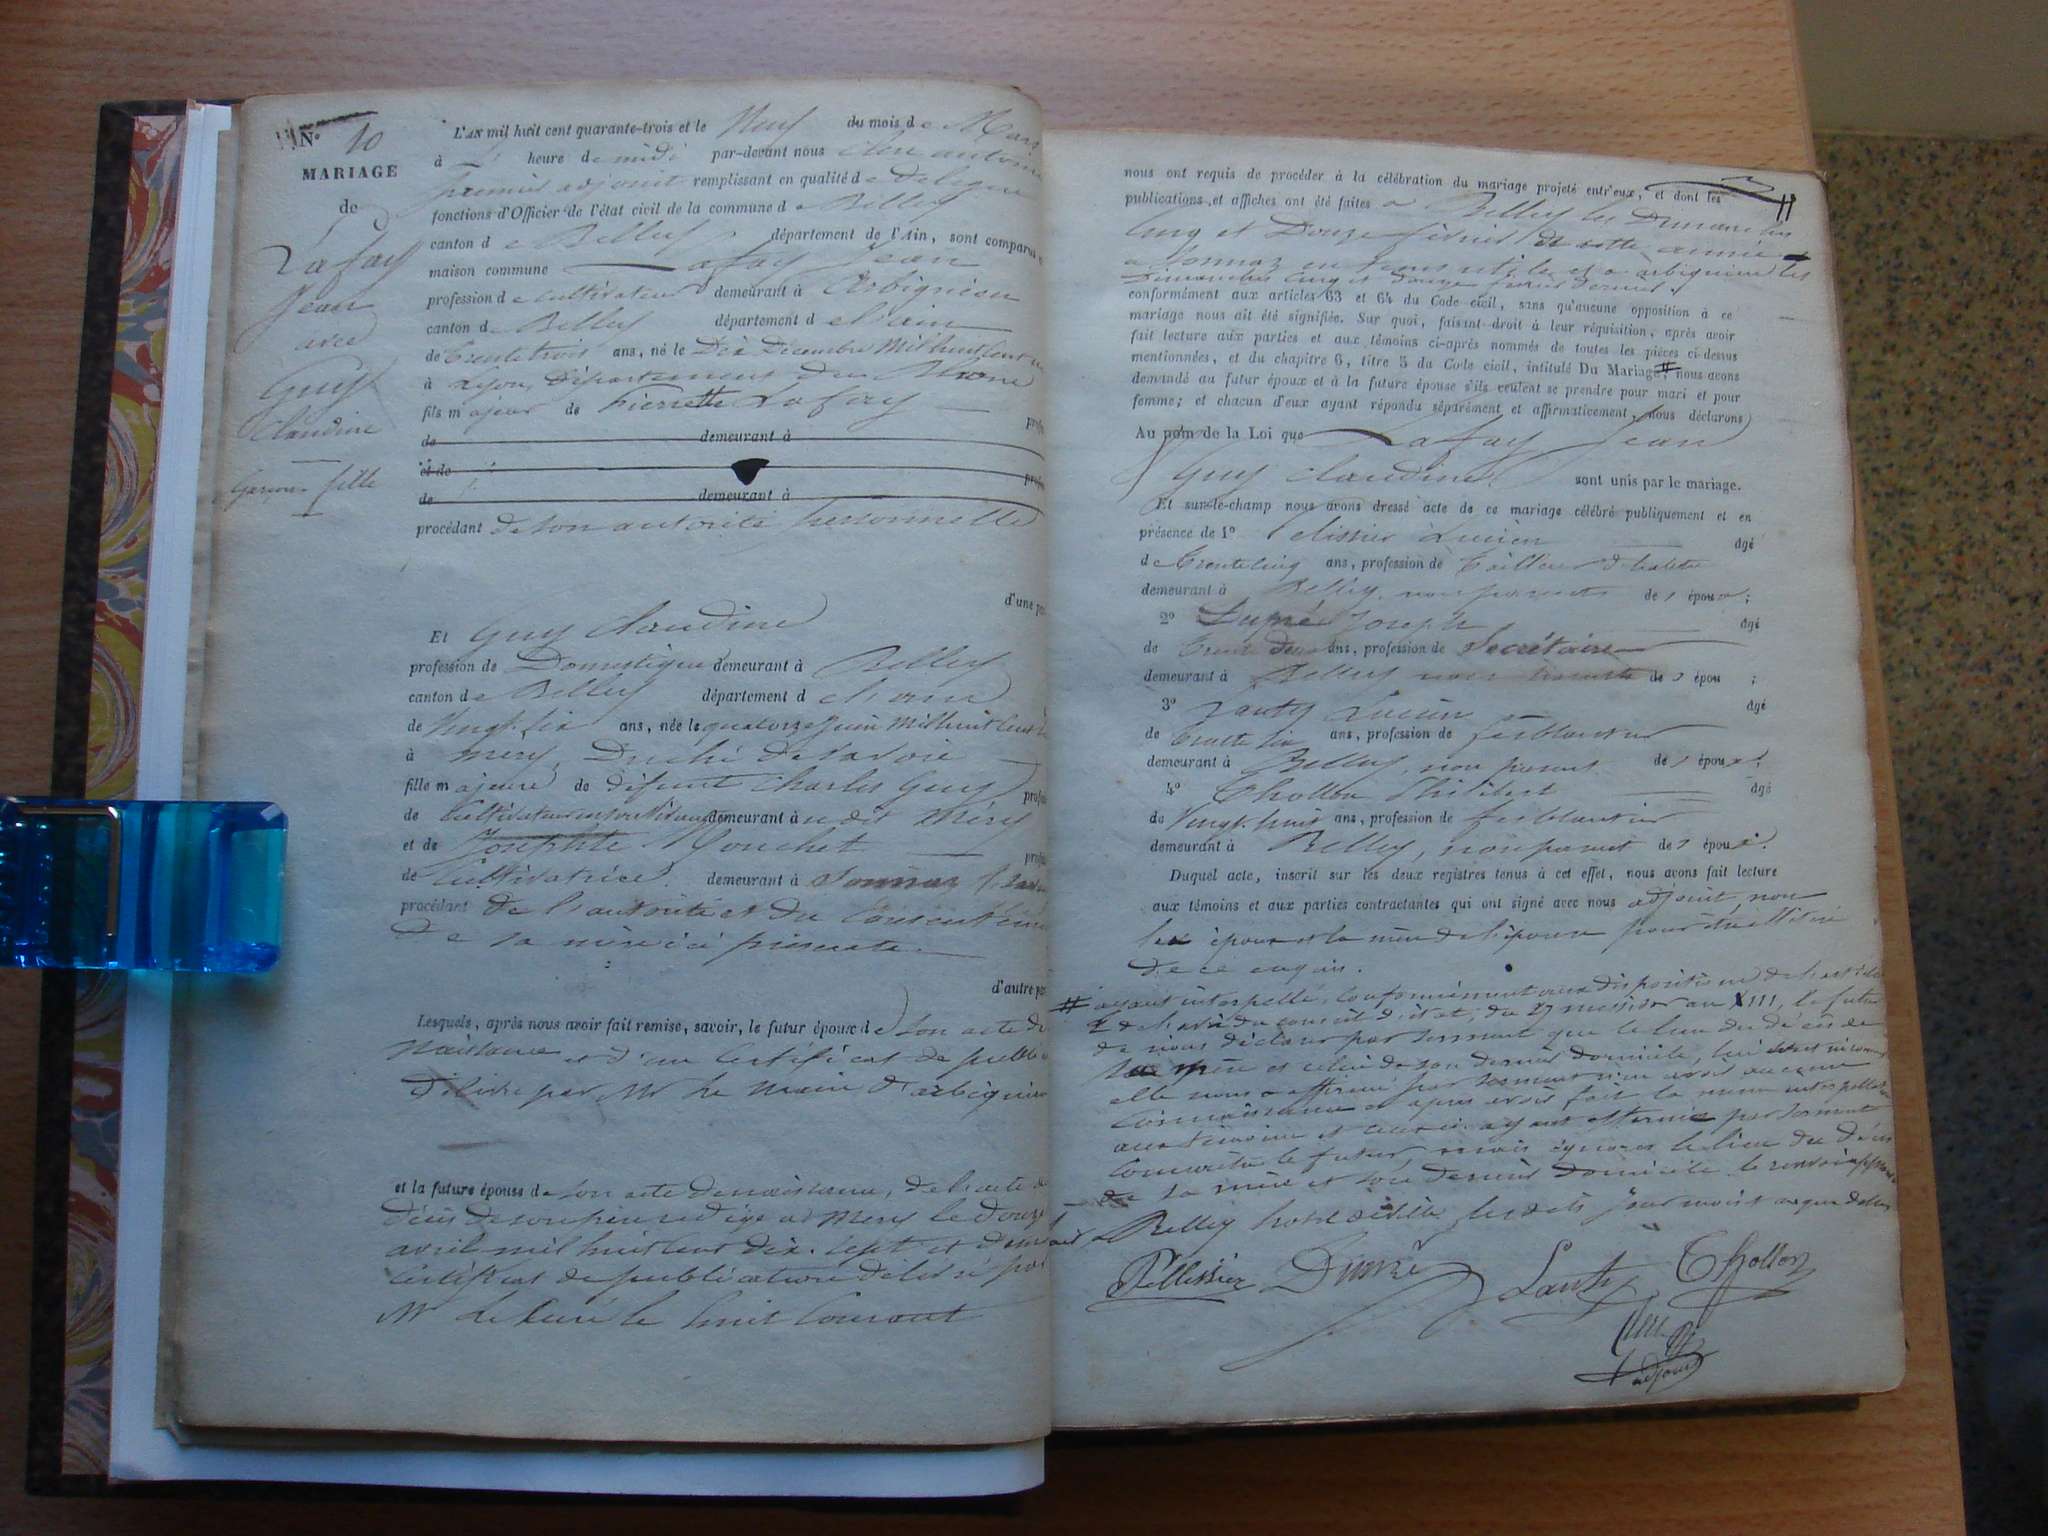 N° 10
MARIAGE
de
Lafay
Jean
avec
Guy
Claudine
Garçon fille
L'an mil huit cent quarante-trois et le Neuf du mois de Mars
à heure de midi par-devant nous antoine
premier adjoint remplissant en qualité de délégué
fonctions d'Officier de l'état civil de la commune de Belley
canton de Belley département de l'Ain, sont comparus
maison commune Lafay Jean
profession de cultivateur demeurant à Arbignieu
canton de Belley département de l'ain
de trente trois ans, né le Dix Décembre Mil huit cent
à Lyon, Département du Rhône
fils majeur de Pierrette Lafay
de demeurant à
et de
de demeurant à
procédant de son autorité personnelle
d'une
Et Guy Claudine
profession de Domestique demeurant à Belley
canton de Belley département de l'ain
de Vingt six ans, née le quatorze juin Mil huit cent
à Mery, Duché de Savoie
fille majeure de défunt Charles Guy
de cultivateur demeurant à Méry
et de Josephte Mouchet
de Cultivatrice demeurant à Sonnaz
procédant de l'autorité et du consentement
de sa mère ici présente.
d'autre
Lesquels, après nous avoir fait remise, savoir, le futur époux de son acte de
naissance et d'un certificat de
délivré par Mr le maire d'arbignieu
et la future épouse de son acte de naissance, de l'acte de
décès de son père rédigé à Mery le douze
avril mil huit cent dix-sept et d'un
certificat de publication délivré par
Mr le Curé le huit courant
11
nous ont requis de procéder à la célébration du mariage projeté entr'eux, et dont les
publications et affiches ont été faites à Belley les Dimanches
Cinq et Douze février de cette année
à Sonnaz en et à arbignieu les
Dimanches cinq et douze février dernier.
conformément aux articles 63 et 64 du Code civil, sans qu'aucune opposition à ce
mariage nous ait été signifiée. Sur quoi, faisant droit à leur réquisition, après avoir
fait lecture aux parties et aux témoins ci-après nommés de toutes les pièces ci-dessus
mentionnées, et du chapitre 6, titre 5 du Code civil, intitulé Du Mariage, # nous avons
demandé au futur époux et à la future épouse s'ils veulent se prendre pour mari et pour
femme; et chacun d'eux ayant répondu séparément et affirmativement, nous déclarons
Au nom de la Loi que Lafay Jean
Guy Claudine sont unis par le mariage.
Et sur-le-champ nous avons dressé acte de ce mariage célébré publiquement et en
présence de 1° Pelissier Lucien âgé
de trente cinq ans, profession de Tailleur d'habits
demeurant à Belley, non parent des époux;
2° Dupré Joseph âgé
de trente deux ans, profession de Secrétaire
demeurant à Belley non parent des épou ;
3° Lanty Lucien âgé
de trente six ans, profession de ferblantier
demeurant à Belley, non parent des époux;
4° Thollon Philibert âgé
de Vingt-huit ans, profession de ferblantier
demeurant à Belley, non parent des époux.
Duquel acte, inscrit sur les deux registres tenus à cet effet, nous avons fait lecture
aux témoins et aux parties contractantes qui ont signé avec nous adjoint, non
les époux et la mère de l'épouse pour être illitérés
de ce enquis.
# ayant interpellé, conformément aux dispositions de l'article
de l'avis du conseil d'état, du 27 messidor an XIII, le futur
de nous déclarer par serment que le lieu du décès de
sa mère et celui de son dernier domicile, lui inconnu
elle nous a affirmé par serment n'en avoir aucune
connaissance et après avoir fait la même interpellation
aux témoins et ceux-ci ayant affirmé par serment
connaître le futur, mais ignorer le lieu du décès
de sa mère et son dernier domicile
à Belley hotel de ville les dits jour mois et an que dessus
Pellissier Dupré Lanty Thollon
adjoint